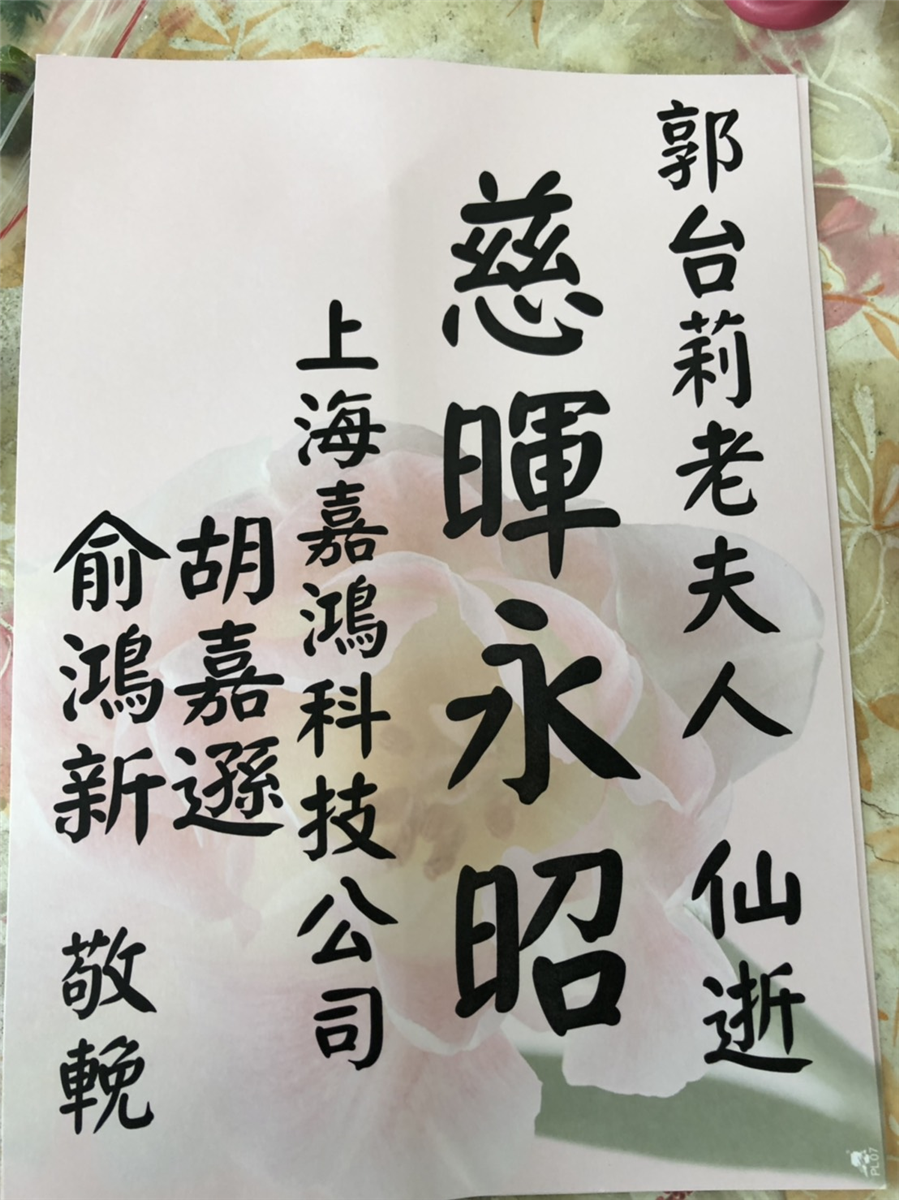 郭台莉老夫人 仙逝
慈暉永昭
上海嘉鴻科技公司
胡嘉遜
俞鴻新 敬輓
PL07